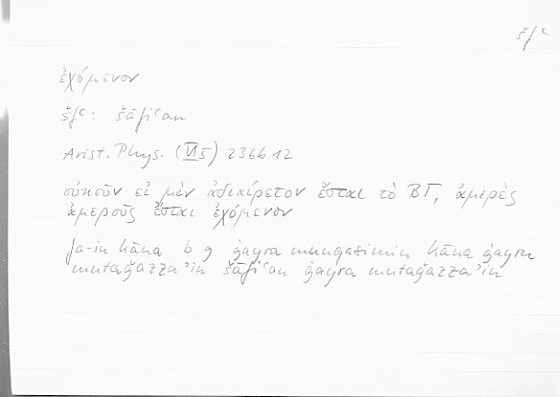 šfʿ
ἐχόμενον
šfʿ: šāfiʿan
Arist. Phys. (VI 5) 236b12
οὐκοῦν εἰ μὲν ἀδιαίρετον ἔσται τὸ ΒΓ, ἀμερὲς
ἀμεροῦς ἔσται ἐχόμενον
fa-in kāna b g ġayra munqasimin kāna ġayru
mutaǧazzaʾin šāfiʿan ġayra mutaǧazzaʾin